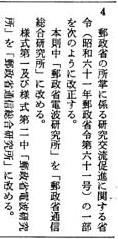 4
郵政省の所掌に係る研究交流促進に関する省
令（昭和六十一年郵政省令第六十一号）の一部
を次のように改正する。
本則中「郵政省電波研究所」を「郵政省通信
総合研究所」に改める。
様式第一及び様式第二中「郵政省電波研究
所」を「郵政省通信総合研究所」に改める。